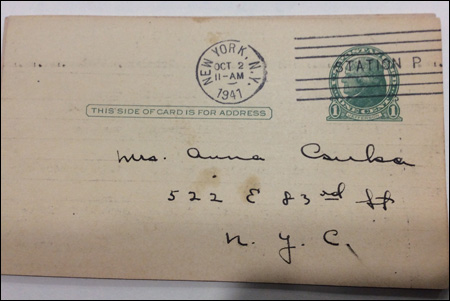 NEW YORK, N.Y.
OCT 2
11-AM
1941
STATION P.
THIS SIDE OF CARD IS FOR ADDRESS
1 1
Mrs. Anna Csuka
522 E 83rd St
N. Y. C.